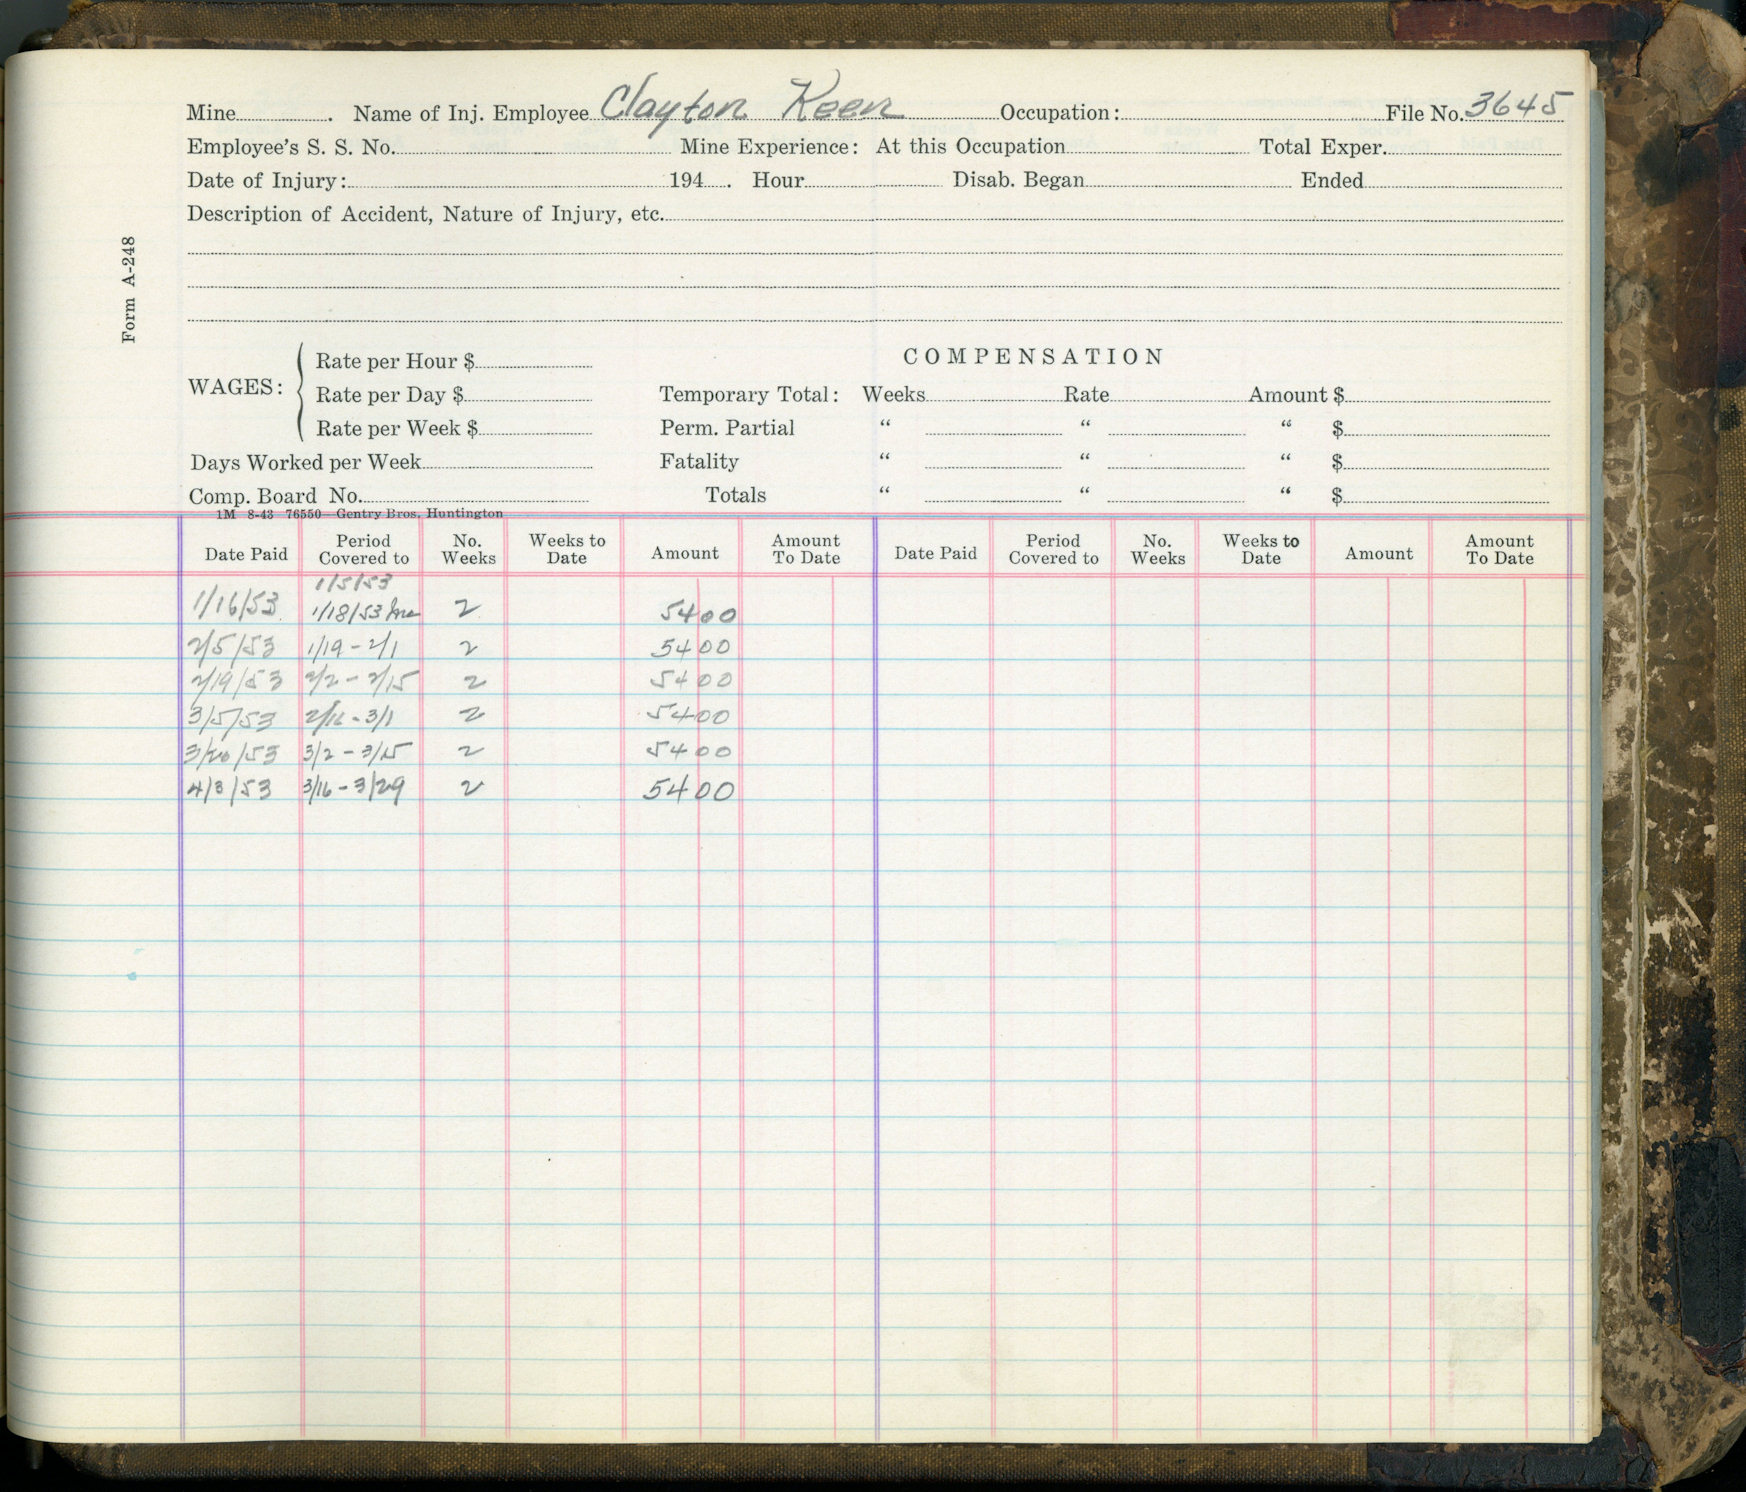 Mine . Name of Inj. Employee Clayton Keen Occupation: File No. 3645
Employee's S. S. No. Mine Experience: At this Occupation Total Exper.
Date of Injury: 194 . Hour Disab. Began Ended
Description of Accident, Nature of Injury, etc.
Form A-248
WAGES: Rate per Hour $
Rate per Day $
Rate per Week $
Days Worked per Week
Comp. Board No.
COMPENSATION
Temporary Total: Weeks Rate Amount $
Perm. Partial " " " $
Fatality " " " $
Totals " " " $
1M 8-43 76550—Gentry Bros. Huntington
Date Paid Period Covered to No. Weeks Weeks to Date Amount Amount To Date Date Paid Period Covered to No. Weeks Weeks to Date Amount Amount To Date
1/5/53
1/16/53 1/18/53 Inc 2 54 00
2/5/53 1/19 - 2/1 2 54 00
2/19/53 2/2 - 2/15 2 54 00
3/5/53 2/16 - 3/1 2 54 00
3/20/53 3/2 - 3/15 2 54 00
4/3/53 3/16 - 3/29 2 54 00